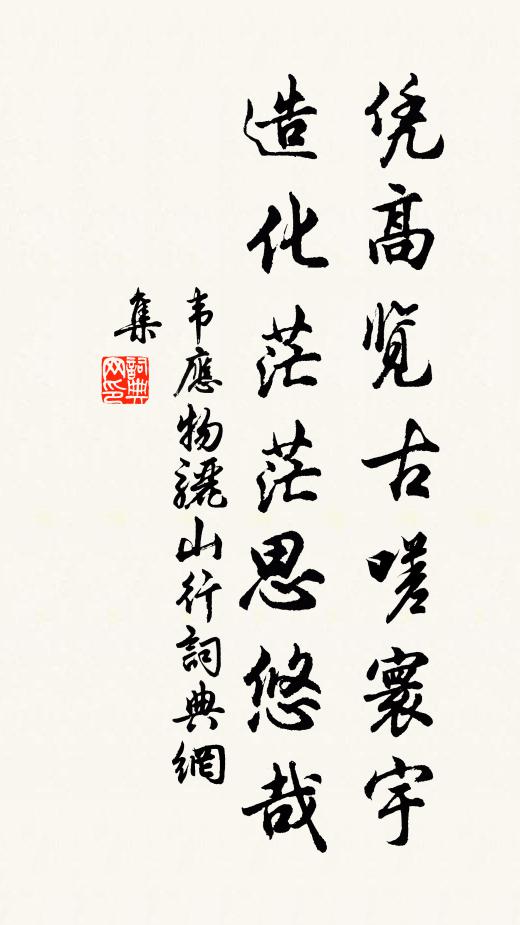 凭高览古嗟寰宇
造化茫茫思悠哉
韦應物驪山行詞典網
集
詞典网印